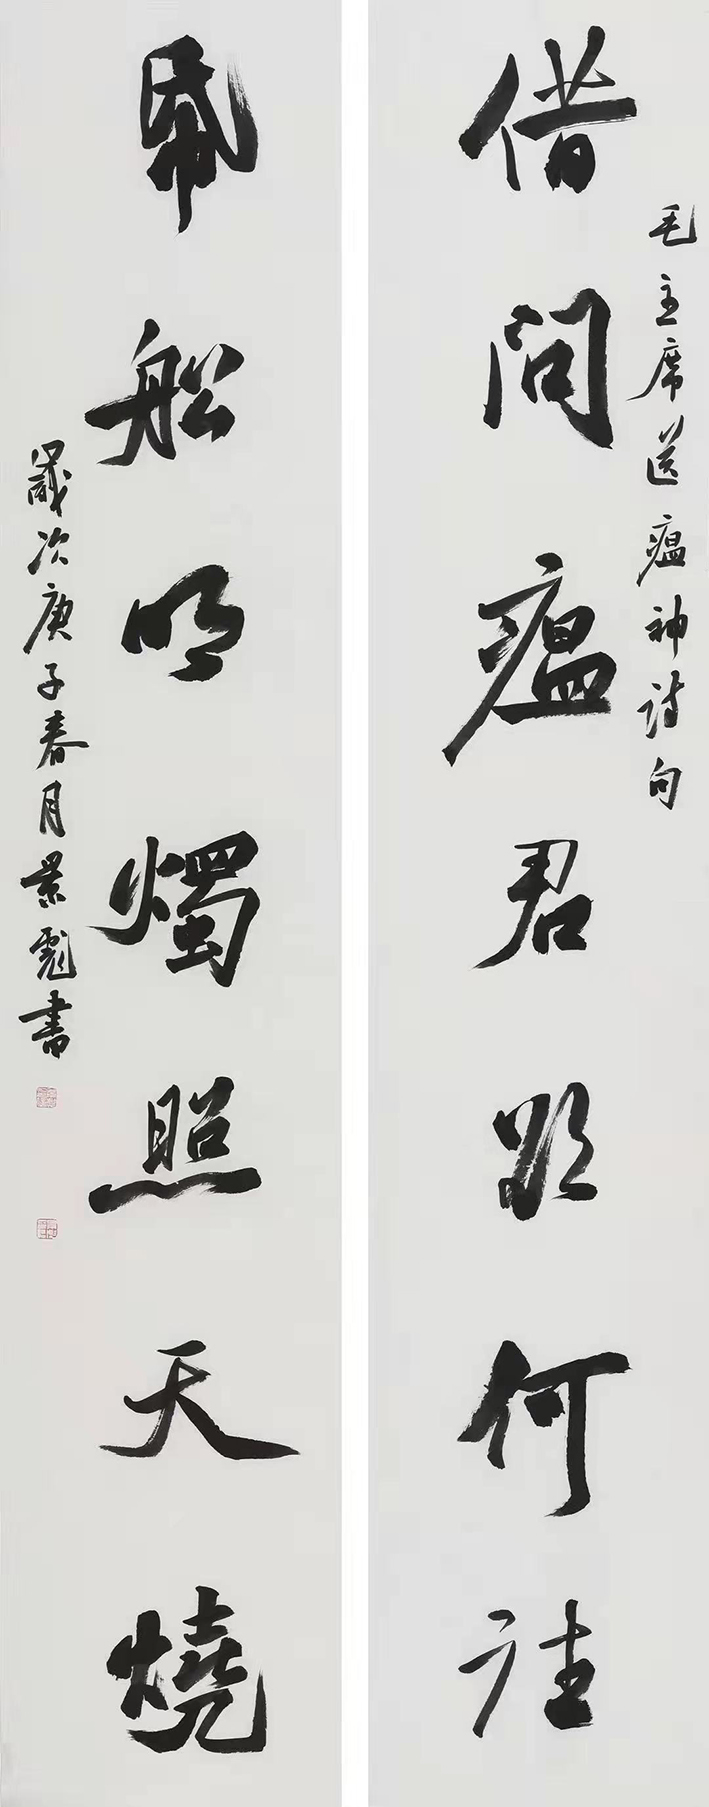 毛主席送瘟神诗句
借问瘟君欲何往
帋船明燭照天燒
歲次庚子春月景彪書